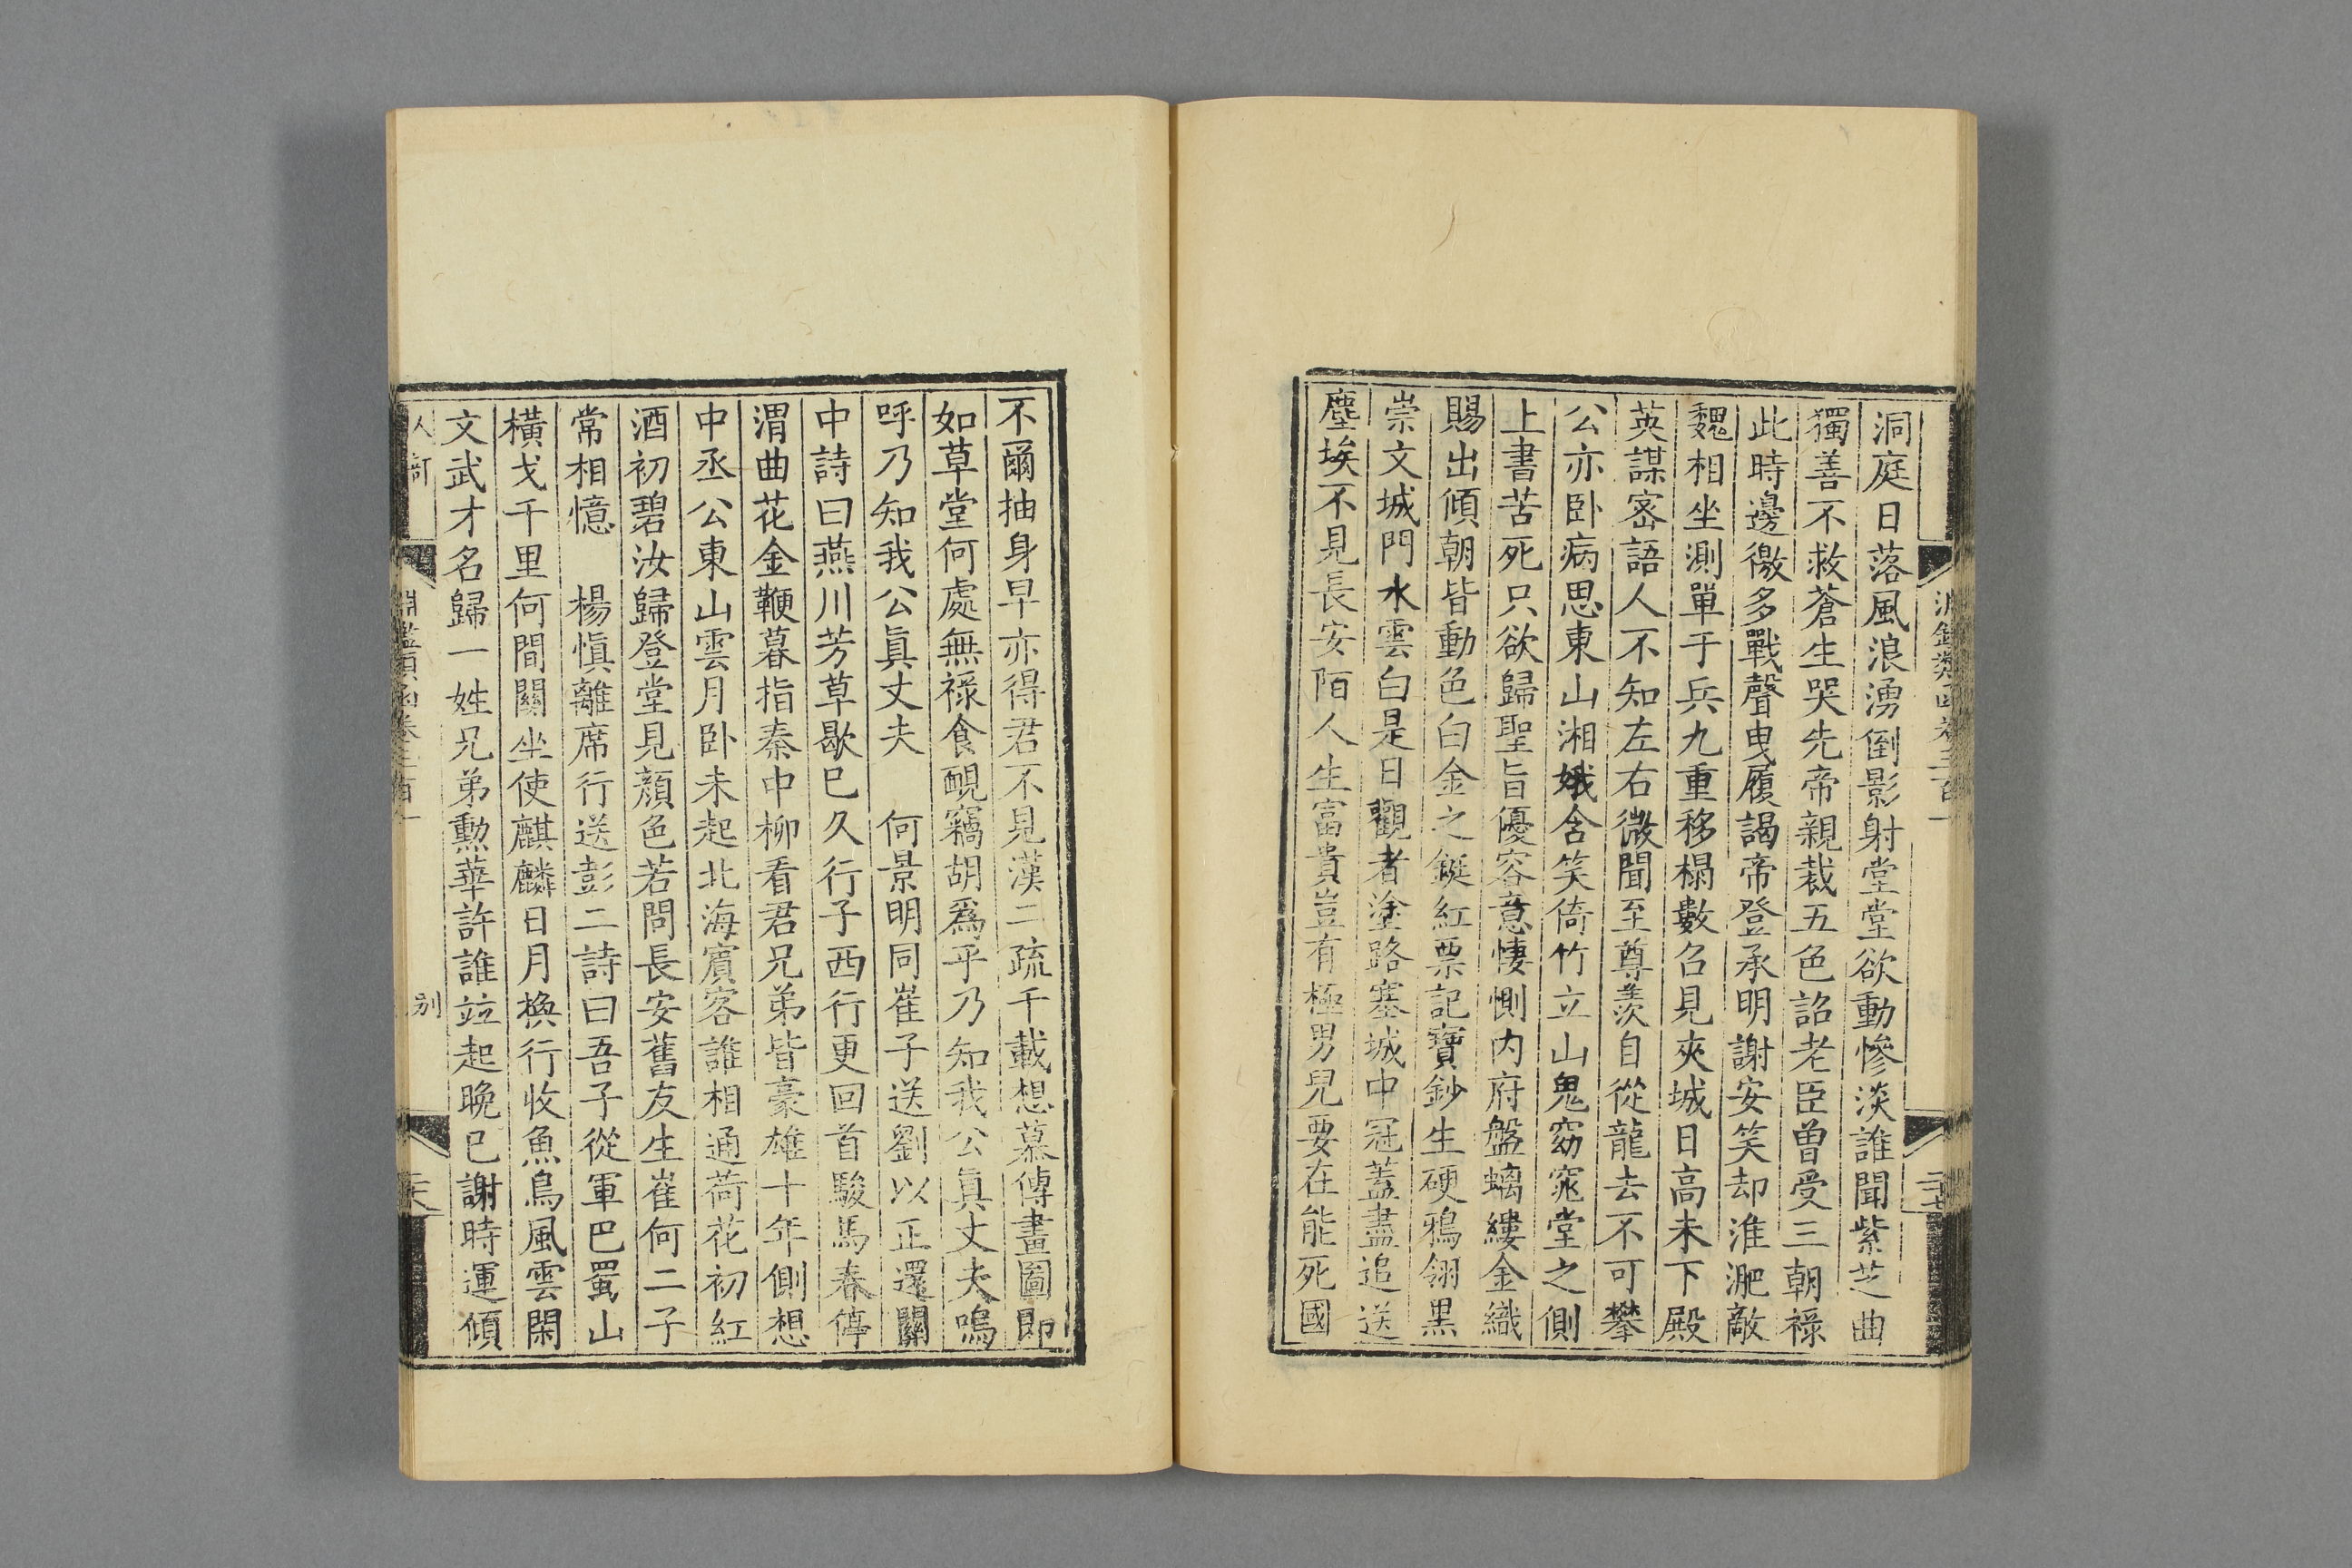 洞庭日落風浪湧倒影射堂堂欲動慘淡誰聞紫芝曲
獨善不救蒼生哭先帝親裁五色詔老臣曾受三朝祿
此時邊徼多戰聲曳履謁帝登承明謝安笑却淮淝敵
魏相坐測單于兵九重移榻數召見夾城日高未下殿
英謀密語人不知左右微聞至尊羨自從龍去不可攀
公亦卧病思東山湘娥含笑倚竹立山鬼窈窕堂之側
上書苦死只欲歸聖旨優容意悽惻內府盤螭縷金織
賜出傾朝皆動色白金之鋌紅票記寶鈔生硬鴉翎黑
崇文城門水雲白是日觀者塗路塞城中冠蓋盡追送
塵埃不見長安陌人生富貴豈有極男兒要在能死國
不爾抽身早亦得君不見漢二疏千載想慕傳畫圖即
如草堂何處無祿食靦竊胡爲乎乃知我公眞丈夫嗚
呼乃知我公眞丈夫 何景明同崔子送劉以正還關
中詩曰燕川芳草歇巳久行子西行更回首駿馬春停
渭曲花金鞭暮指秦中柳看君兄弟皆豪雄十年側想
中丞公東山雲月卧未起北海賓客誰相通荷花初紅
酒初碧汝歸登堂見顏色若問長安舊友生崔何二子
常相憶 楊愼離席行送彭二詩曰吾子從軍巴蜀山
橫戈千里何間關坐使麒麟日月換行收魚鳥風雲閑
文武才名歸一姓兄弟勲華許誰竝起晚巳謝時運傾
淵鑑類函卷三百一
别